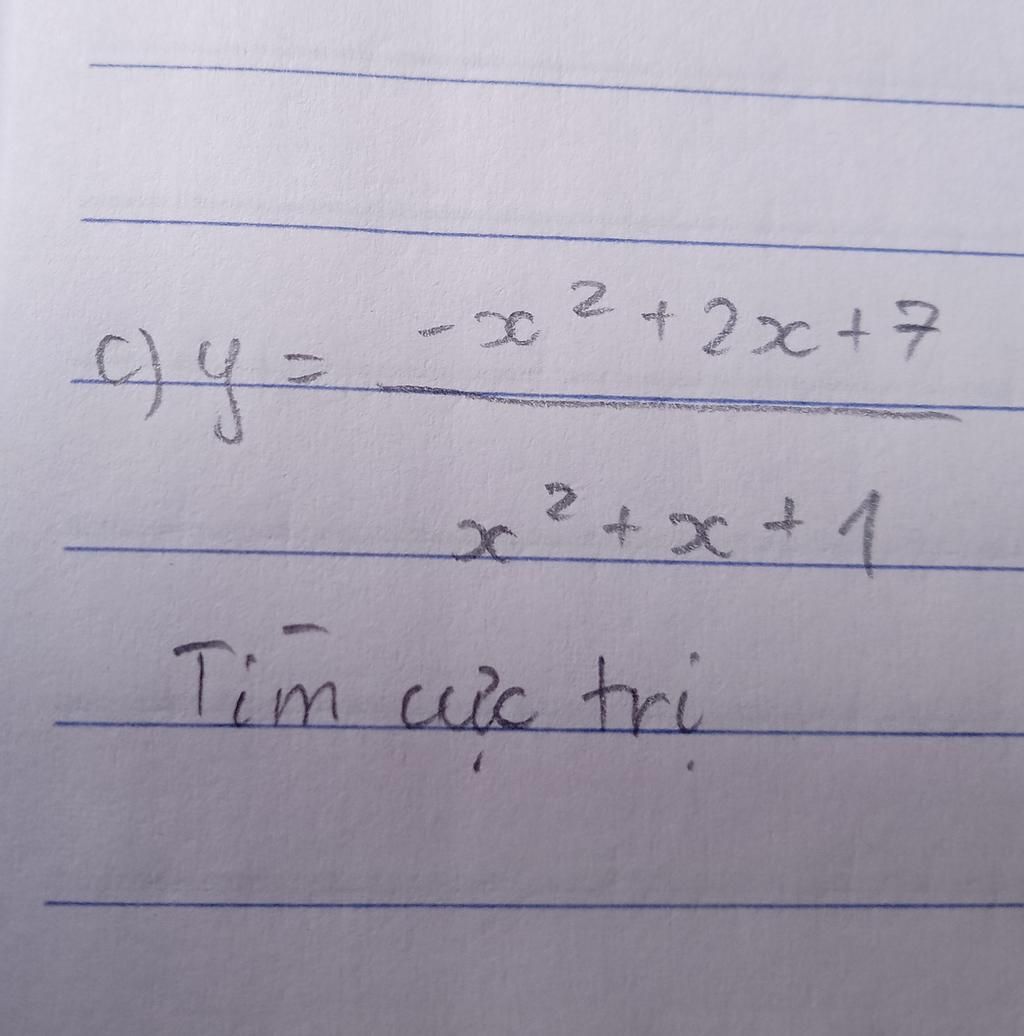 c) y = \frac{-x^2 + 2x + 7}{x^2 + x + 1}
Tìm cực trị